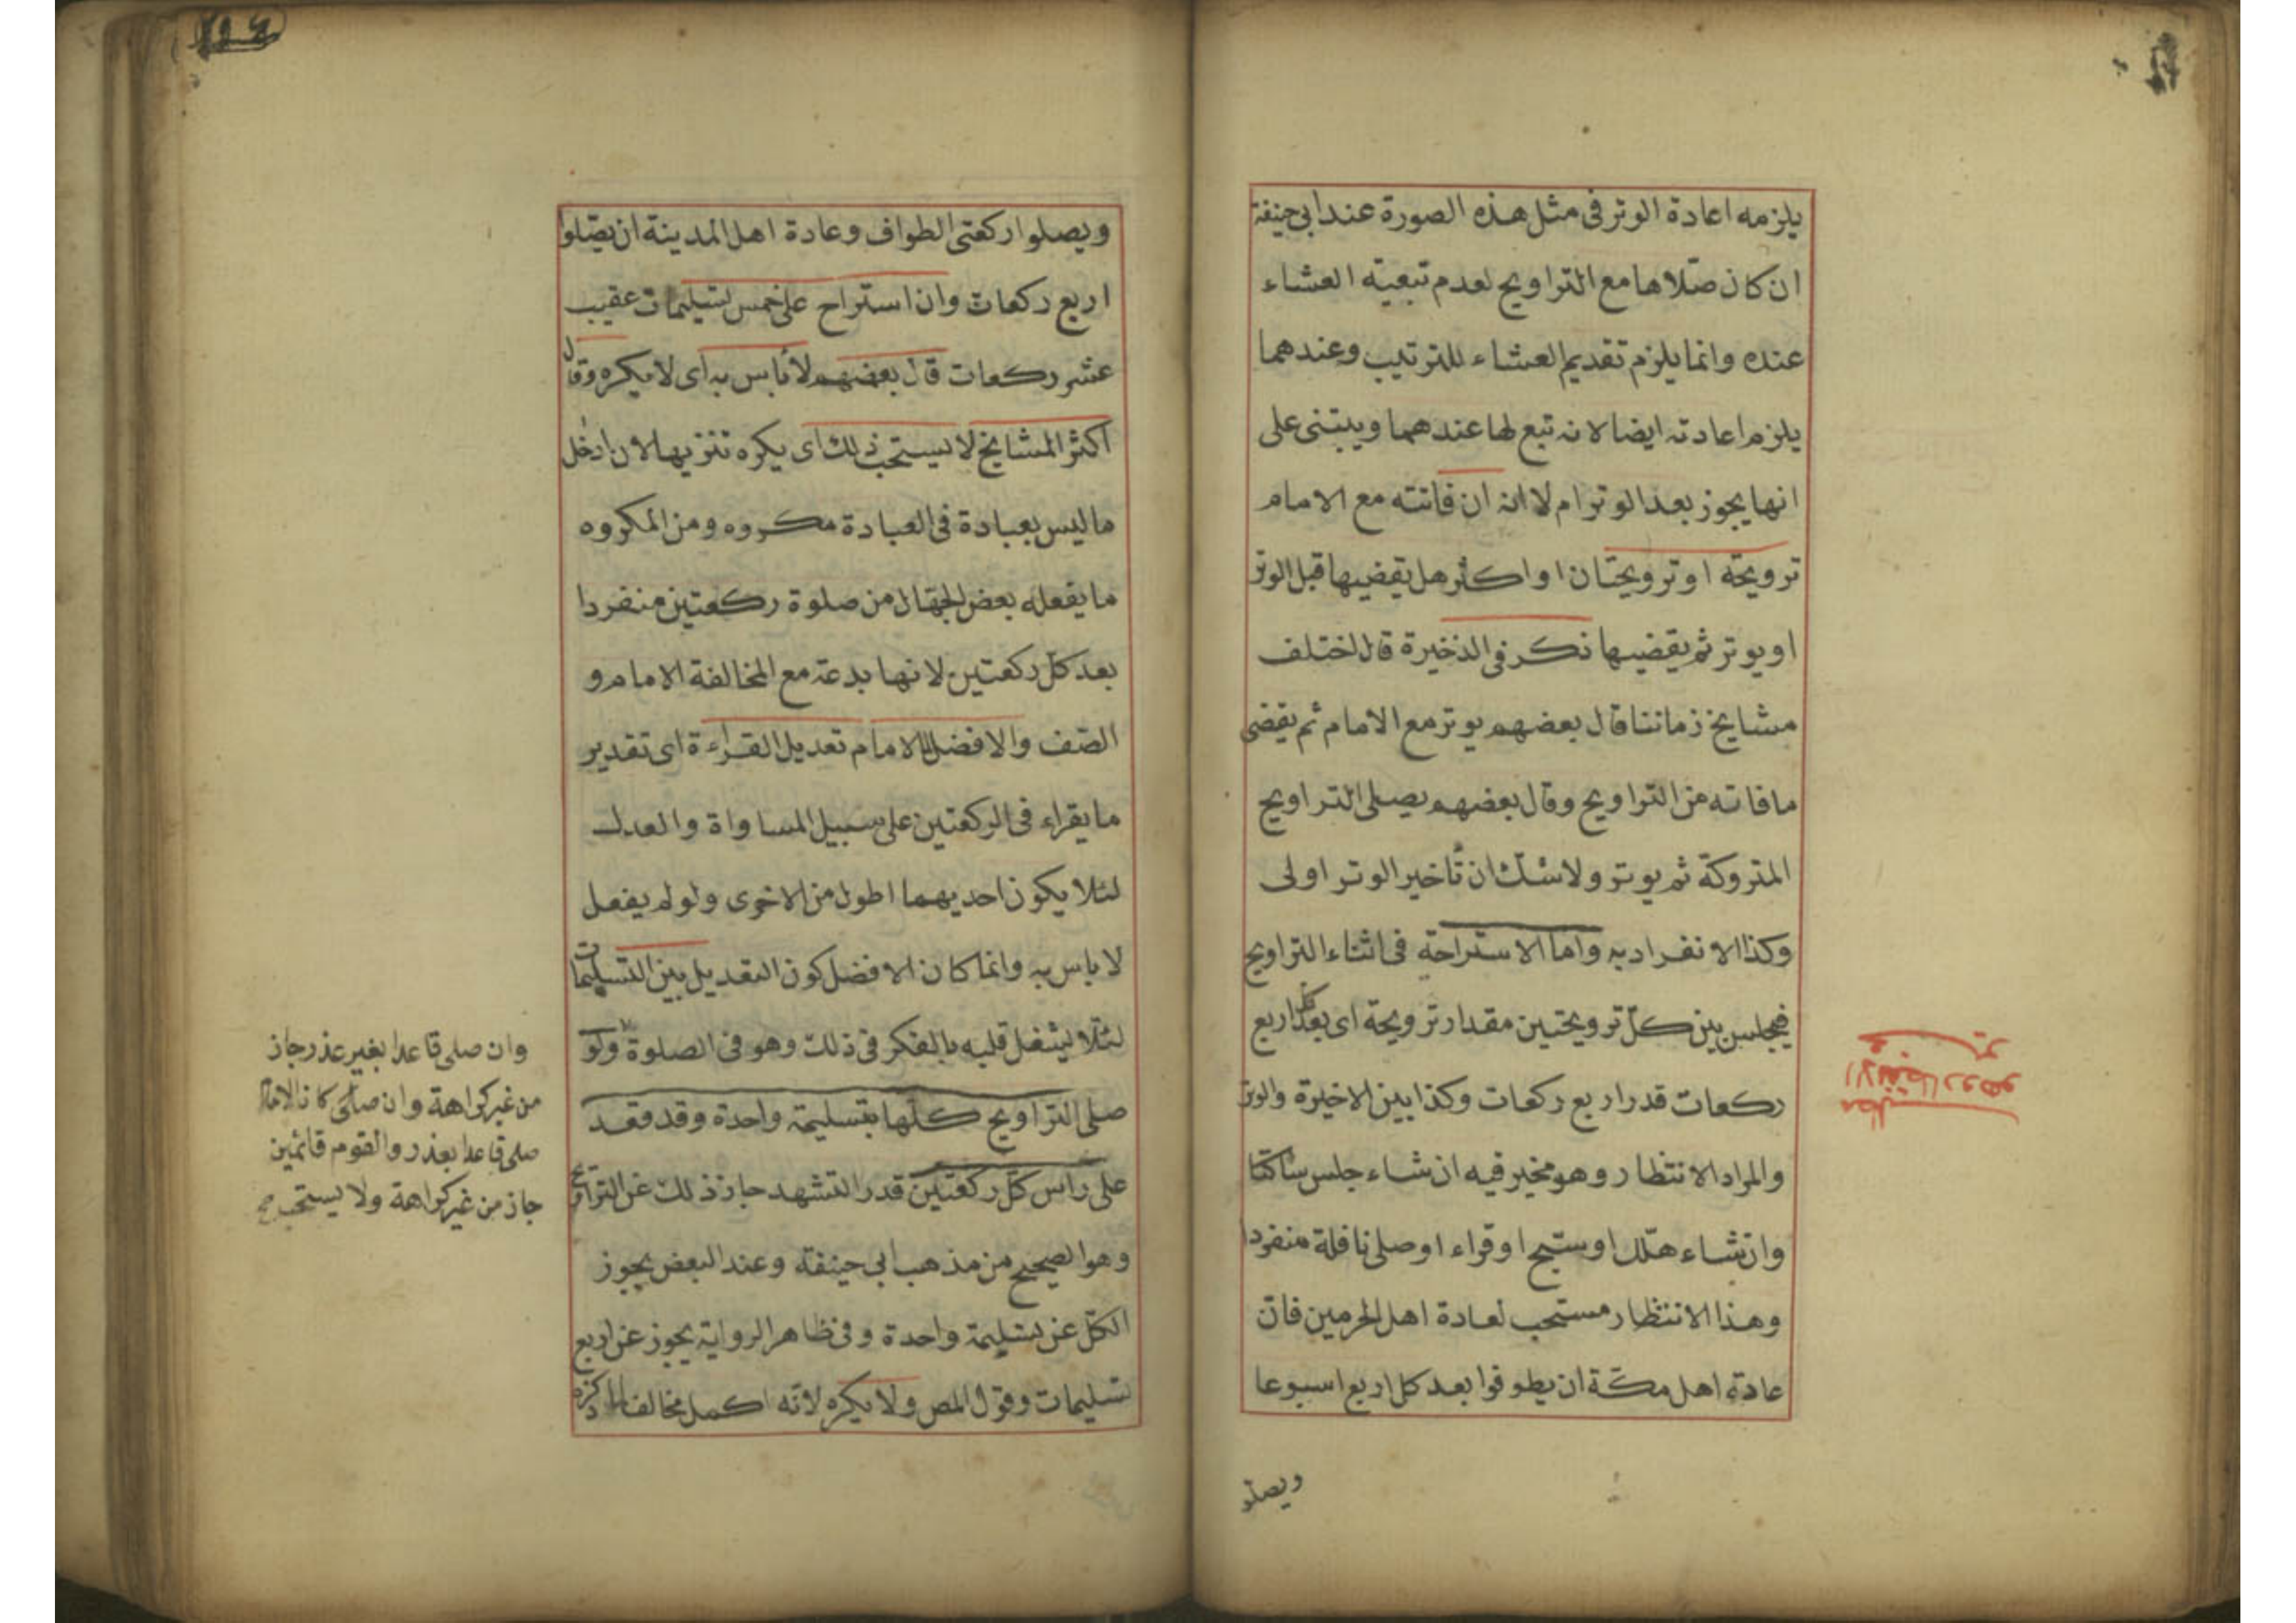 يلزمه اعادة الوتر فى مثل هذه الصورة عند ابى حنيفة
ان كان صلاها مع التراويح لعدم تبعيته العشاء
عنده وانما يلزم تقديم العشاء للترتيب وعندهما
يلزم اعادته ايضا لانه تبع لها عندهما ويبتنى على
انها يجوز بعد الوتر ام لا انه ان فاتته مع الامام
ترويحة او ترويحتان او اكثر هل يقضيها قبل الوتر
او يوتر ثم يقضيها ذكر فى الذخيرة قال اختلف
مشايخ زماننا قال بعضهم يوتر مع الامام ثم يقضى
ما فاته من التراويح وقال بعضهم يصلى التراويح
المتروكة ثم يوتر ولا شك ان تأخير الوتر اولى
وكذا الانفراد به واما الاستراحة فى اثناء التراويح
فيجلس بين كل ترويحتين مقدار ترويحة اى بعد كل اربع
ركعات قدر اربع ركعات وكذا بين الاخيرة والوتر
والمراد الانتظار وهو مخير فيه ان شاء جلس ساكتا
وان شاء هلل او سبح او قراء او صلى نافلة منفردا
وهذا الانتظار مستحب لعادة اهل الحرمين فان
عادة اهل مكة ان يطوفوا بعد كل اربع اسبوعا
ويصلو
الانتظار وهو
ويصلوا ركعتى الطواف وعادة اهل المدينة ان يصلوا
اربع ركعات وان استراح على خمس تسليمات عقيب
عشر ركعات قال بعضهم لا بأس به اى لا يكره وقال
اكثر المشايخ لا يستحب ذلك اى يكره تنزيها لان ادخل
ما ليس بعبادة فى العبادة مكروه ومن المكروه
ما يفعله بعض الجهال من صلوة ركعتين منفردا
بعد كل ركعتين لانها بدعة مع المخالفة الامام و
الصف والافضل للامام تعديل القراءة اى تقدير
ما يقراء فى الركعتين على سبيل المساواة والعدل
لئلا يكون احديهما اطول من الاخرى ولو لم يفعل
لا باس به وانما كان الافضل كون التعديل بين التسليمات
لئلا يشغل قلبه بالفكر فى ذلك وهو فى الصلوة ولو
صلى التراويح كلها بتسليمة واحدة وقد قعد
على رأس كل ركعتين قدر التشهد جاز ذلك عن التراويح
وهو الصحيح من مذهب ابى حنيفة وعند البعض يجوز
الكل عن تسليمة واحدة وفى ظاهر الرواية يجوز عن اربع
تسليمات وقول المص ولا يكره لانه اكمل مخالف لما ذكره
وان صلى قاعدا بغير عذر جاز
من غير كراهة وان صلى كان الامام
صلى قاعدا بعذر والقوم قائمين
جاز من غير كراهة ولا يستحب صح